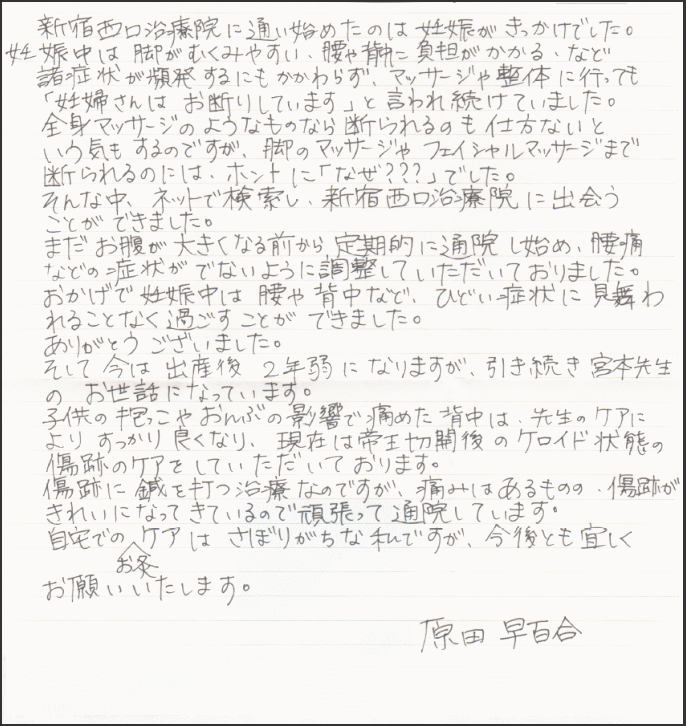 新宿西口治療院に通い始めたのは妊娠がきっかけでした。
妊娠中は脚がむくみやすい、腰や背中に負担がかかる、など
諸症状が頻発するにもかかわらず、マッサージや整体に行っても
「妊婦さんは お断りしています」と言われ続けていました。
全身マッサージのようなものなら断られるのも仕方ないと
いう気もするのですが、脚のマッサージやフェイシャルマッサージまで
断られるのには、ホントに「なぜ???」でした。
そんな中、ネットで検索し、新宿西口治療院に出会う
ことができました。
まだお腹が大きくなる前から定期的に通院し始め、腰痛
などの症状がでないように調整していただいておりました。
おかげで妊娠中は腰や背中など、ひどい症状に見舞わ
れることなく過ごすことができました。
ありがとうございました。
そして今は出産後 2年弱になりますが、引き続き宮本先生
の お世話になっています。
子供の抱っこやおんぶの影響で痛めた背中は、先生のケアに
よりすっかり良くなり、現在は帝王切開後のケロイド状態の
傷跡のケアをしていただいております。
傷跡に鍼を打つ治療なのですが、痛みはあるものの、傷跡が
きれいになってきているので頑張って通院しています。
自宅でのお灸ケアはさぼりがちな私ですが、今後とも宜しく
お願いいたします。
原田 早百合